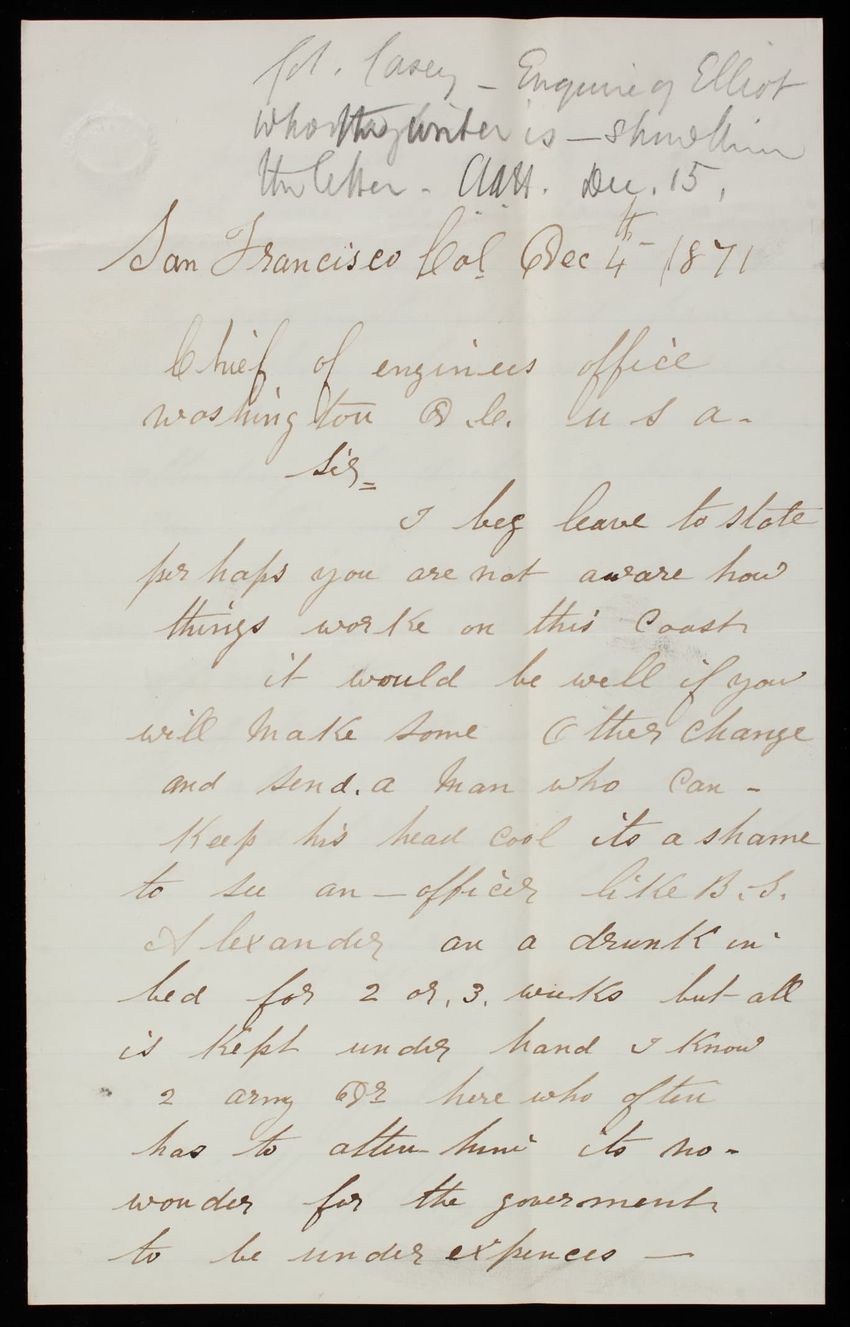 Col. Casey - Enquire of Elliot
who the writer is - show him
the letter. AAH. Dec. 15,
San Francisco Cal Dec 4th 1871
Chief of engineers office
washington D.C. U S a-
Sir=
I beg leave to state
perhaps you are not aware how
things worke on this Coast
it would be well if you
will Make Some Other Change
and send. a Man who Can -
Keep his head Cool its a shame
to see an - officer like B.S.
Alexander an a drunk in
bed for 2 or. 3. weeks but all
is Kept under hand I Know
2 army Dr here who often
has to atten him its no-
wonder for the goverment
to be under expences —